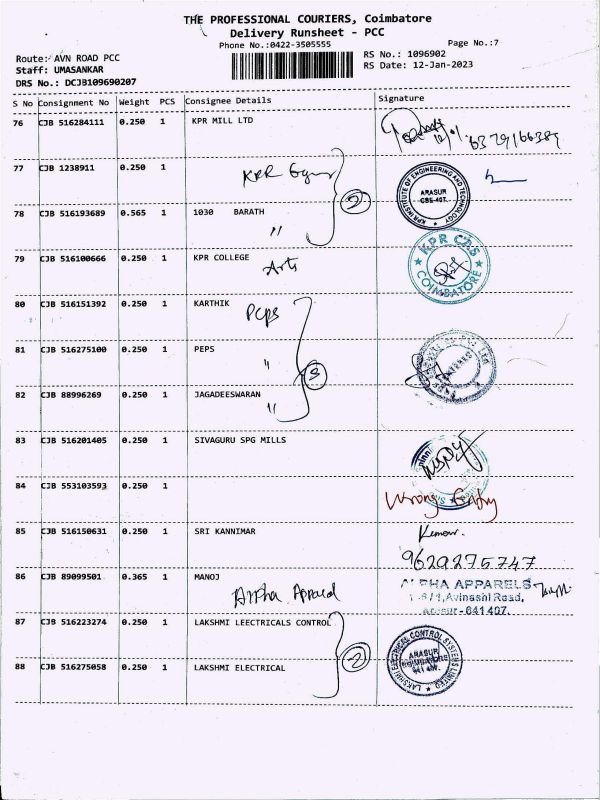 THE PROFESSIONAL COURIERS, Coimbatore
Delivery Runsheet - PCC
Phone No.:0422-3505555 Page No.:7
Route: AVN ROAD PCC RS No.: 1096902
Staff: UMASANKAR RS Date: 12-Jan-2023
DRS No.: DCJB109690207
S No Consignment No Weight PCS Consignee Details Signature
76 CJB 516284111 0.250 1 KPR MILL LTD
77 CJB 1238911 0.250 1 KPR
KPR INSTITUTE OF ENGINEERING AND TECHNOLOGY
ARASUR
CBE-407.
78 CJB 516193689 0.565 1 1030 BARATH
"
2
79 CJB 516100666 0.250 1 KPR COLLEGE
Arts
KPR CAS
COIMBATORE
80 CJB 516151392 0.250 1 KARTHIK
Pcps
81 CJB 516275100 0.250 1 PEPS
"
3
82 CJB 88996269 0.250 1 JAGADEESWARAN
"
83 CJB 516201405 0.250 1 SIVAGURU SPG MILLS
84 CJB 553103593 0.250 1
Wrong Entry
85 CJB 516150631 0.250 1 SRI KANNIMAR
9629275747
86 CJB 89099501 0.365 1 MANOJ
Alpha
ALPHA APPARELS
Avinashi Road,
Arasur-641 407.
87 CJB 516223274 0.250 1 LAKSHMI LEECTRICALS CONTROL
2
88 CJB 516275058 0.250 1 LAKSHMI ELECTRICAL
LAKSHMI ELECTRICAL CONTROL SYSTEMS LIMITED
ARASUR
COIMBATORE
641 407.